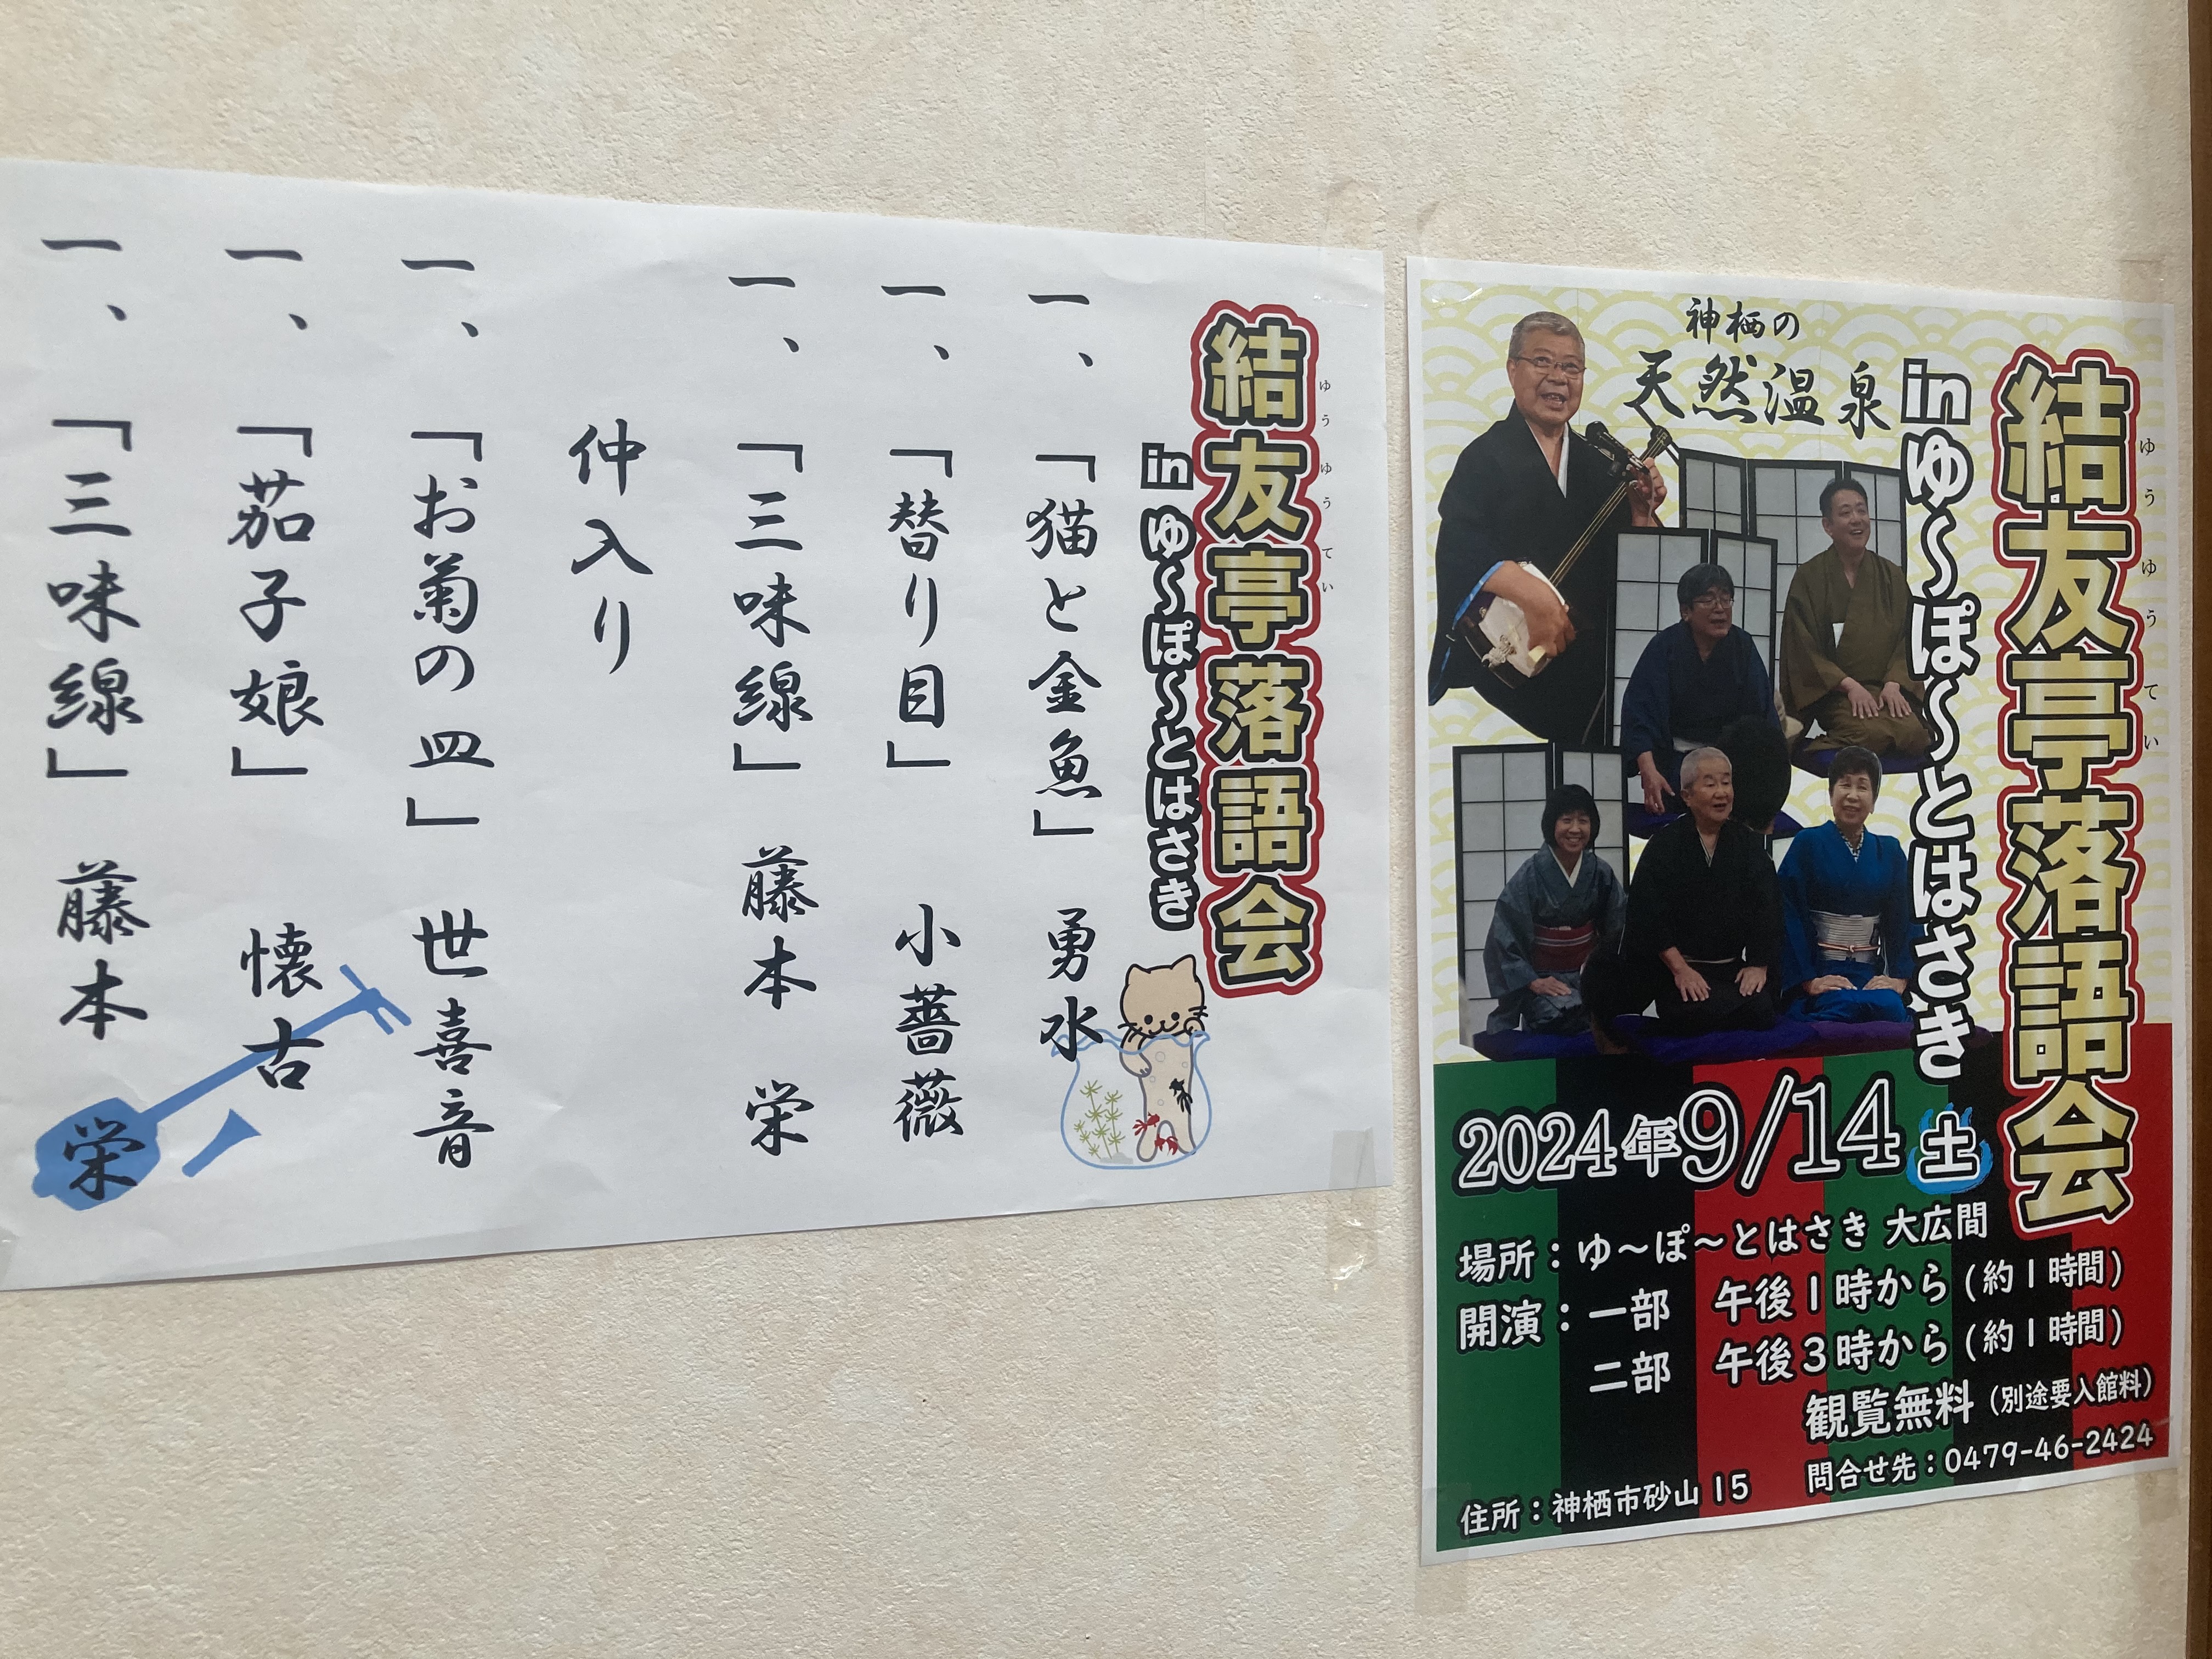 結友亭落語会
ゆうゆうてい
in ゆ〜ぽ〜とはさき
一、「猫と金魚」 勇水
一、「替り目」 小薔薇
一、「三味線」 藤本 栄
仲入り
一、「お菊の皿」 世喜音
一、「茄子娘」 懐古
一、「三味線」 藤本 栄
神栖の
天然温泉
結友亭落語会
ゆうゆうてい
in ゆ〜ぽ〜とはさき
2024年9/14 土
場所：ゆ〜ぽ〜とはさき 大広間
開演：一部 午後1時から（約1時間）
二部 午後3時から（約1時間）
観覧無料（別途要入館料）
問合せ先：0479-46-2424
住所：神栖市砂山15